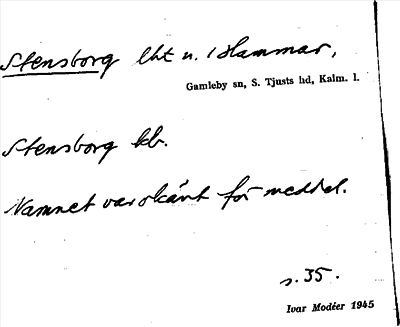 Stensborg lht u. Hammar,
Gamleby sn, S. Tjusts hd, Kalm. l.
Stensborg kb.
Namnet var okänt för meddel.
s. 35.
Ivar Modéer 1945